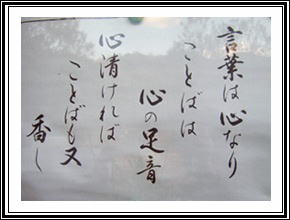 言葉は心なり
ことばは
心の足音
心清ければ
ことばも又
香し